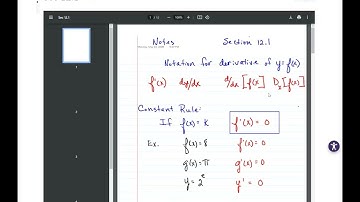 Sec 12.1
Notes Section 12.1
Notation for derivative of y=f(x)
f'(x) dy/dx d/dx [f(x)] Dₓ [f(x)]
Constant Rule:
If f(x) = k f'(x) = 0
Ex. f(x) = 8 f'(x) = 0
g(x) = π g'(x) = 0
y = 2² y' = 0